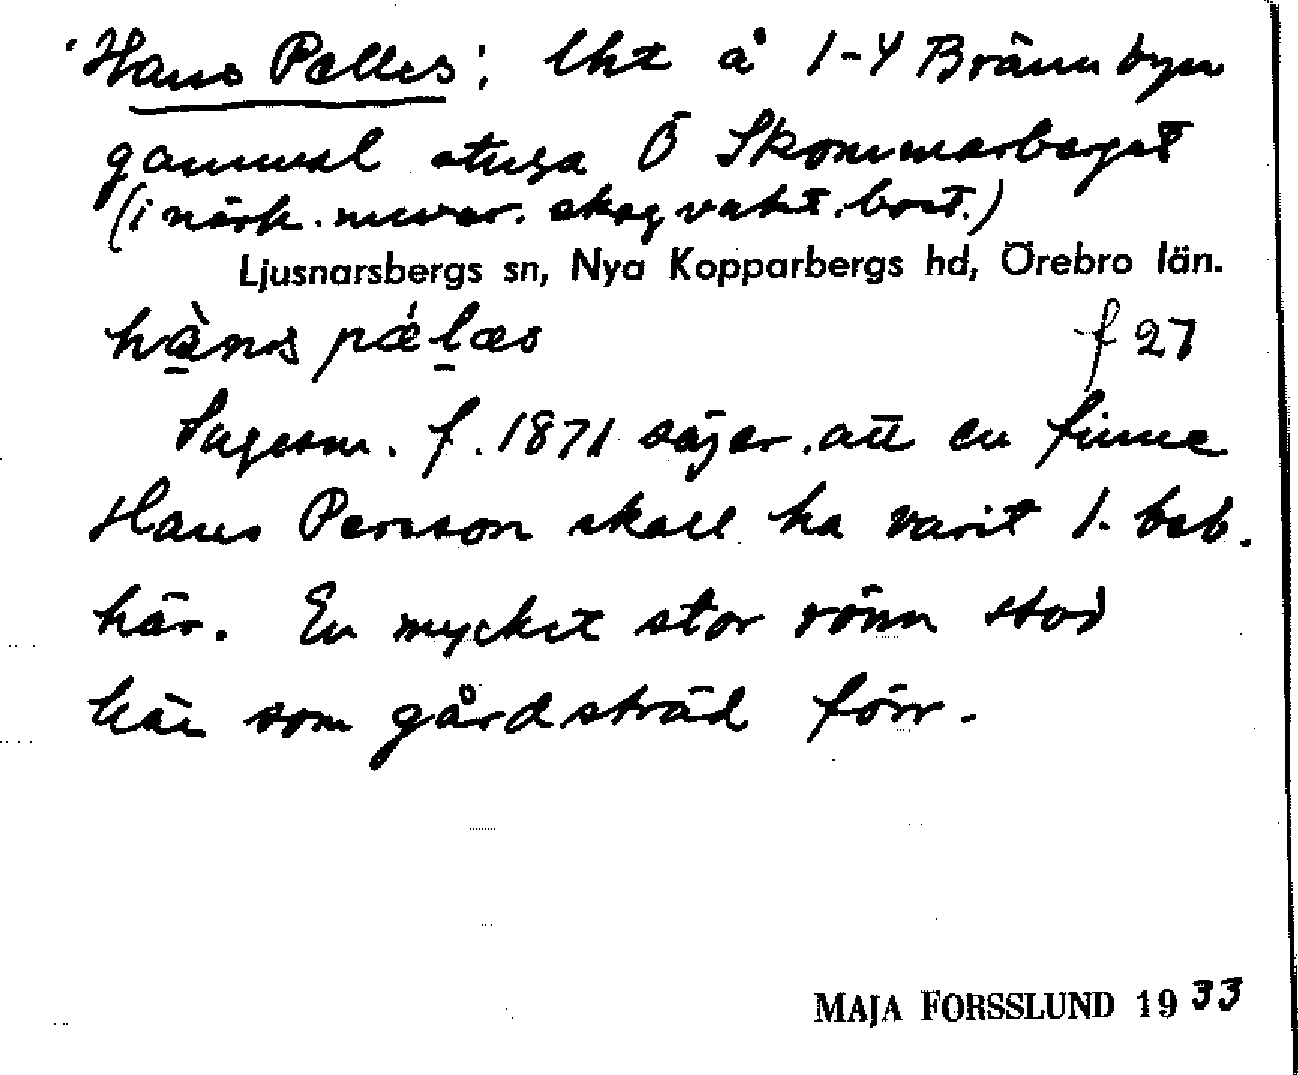 Hans Pelles; lht å 1-4 Brännbyn
gammal stuga Ö Skommarberget
(i närh. nuvar. skogvakt.bost.)
Ljusnarsbergs sn, Nya Kopparbergs hd, Örebro län.
hàns pǽlæs f 27
Sagesm. f. 1871 säjer att en finne
Hans Persson skall ha varit 1. beb.
här. En mycket stor rönn stod
här som gårdsträd förr.
MAJA FORSSLUND 1933